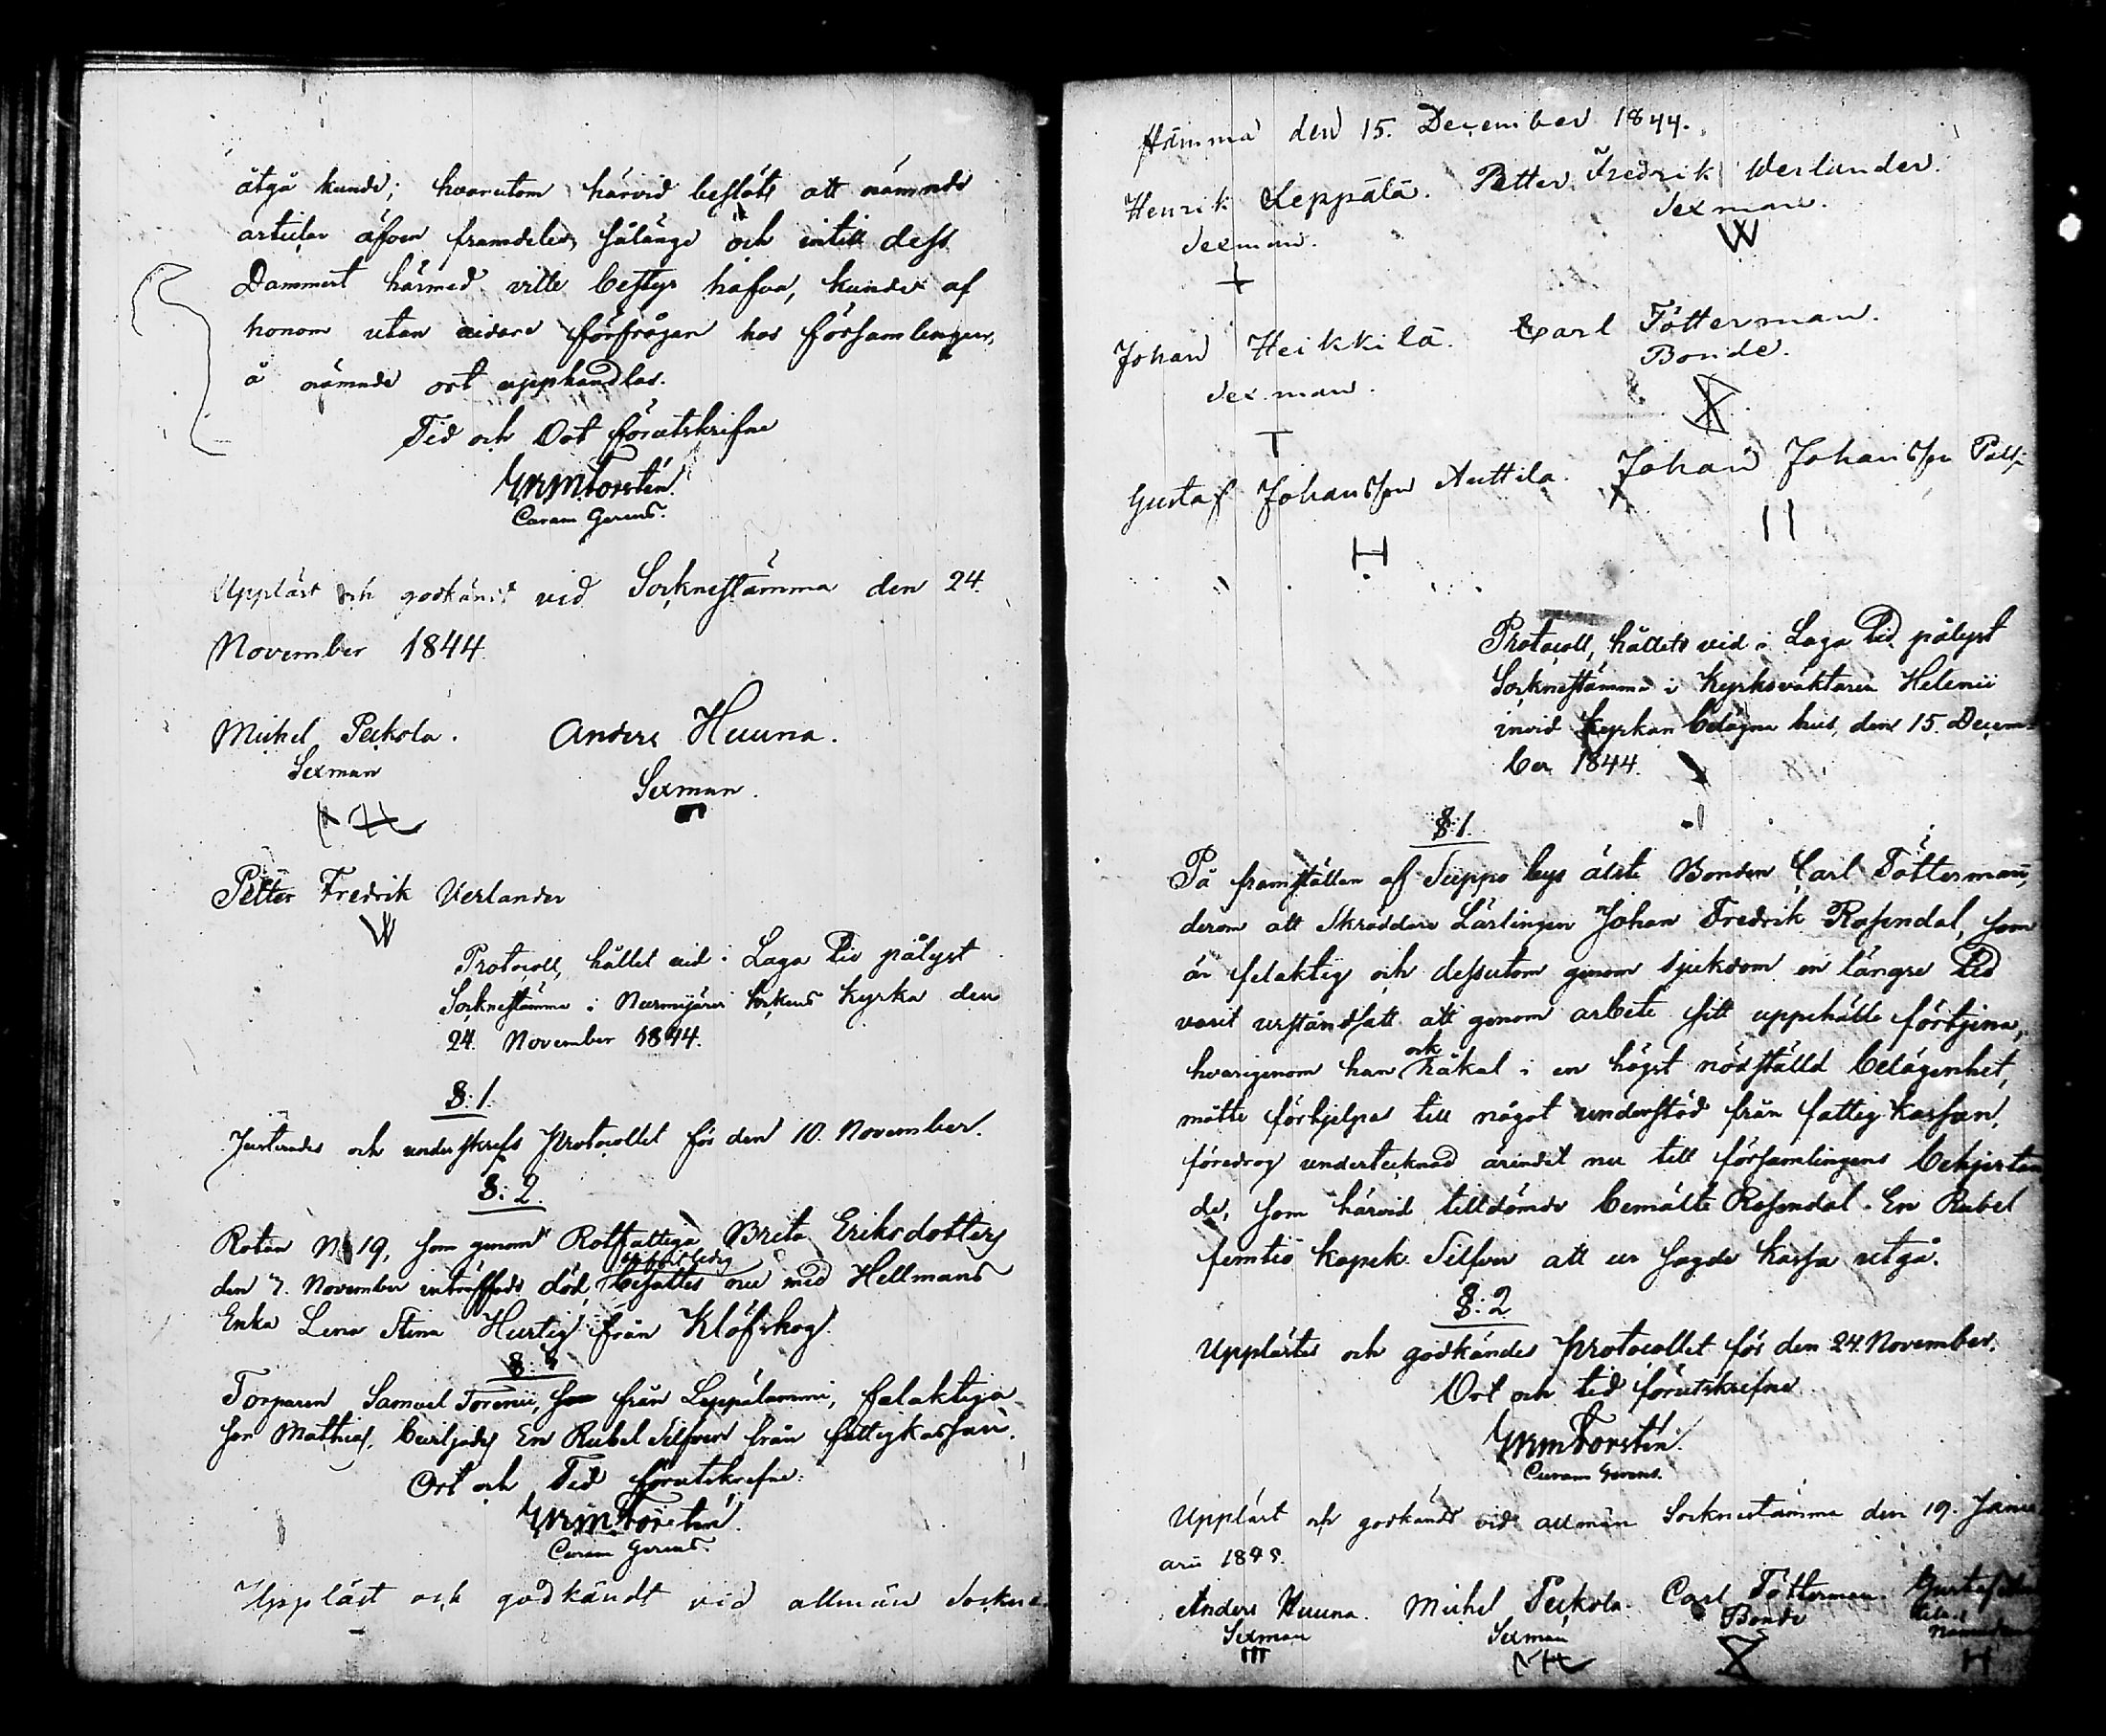 åtgå kunde; hvarutom härvid beslöts att nämnde
artiklar äfven framdeles, sålänge och intill dess
Dammert härmed ville bestyr hafva, kunde af
honom utan vidare förfrågan hos församlingen,
å nämnde ort upphandlas.
Tid och Ort förutskrifne
Forstén
Curam Gerens.
Uppläst och godkänst vid Socknestämma den 24.
November 1844.
Michel Peckola. Anders Huuna.
Sexman Sexman.
Petter Fredrik Verlander
W
Protocoll, hållet vid i Laga tid pålyst
Sockne­stämma i Nurmijärvi Sockens Kyrka den
24. November 1844.
§: 1.
Justerades och underskrefs Protocollet för den 10. November.
§: 2.
Rotan N 19, som genom Rotfattiga Breta Eriksdotters
den 7. November inträffade död, blifvit ledig
besattes nu med Hellmans
Enka Lena Stina Hurtig från Klöfskog.
§: 3
Torparen Samuel Torenii, från Leppälammi, felaktiga
son Mathias, beviljades En Rubel Silfver från fattigkassan.
Ort och Tid förutskrefne.
Forstén
Curam Gerens.
Uppläst och godkändt vid allmän Sockne
stämma den 15. December 1844.
Henrik Leppälä. Petter Fredrik Werlander.
Sexman. Sexman.
+ W
Johan Heikkilä. Carl Tötterman.
Sexman. Bonde.
T X
Gustaf Johansson Anttila. Johan Johansson
H II
Protocoll, hållets vid i Laga tid pålyst
Socknestämma i Kyrkovaktaren Helenii
invid Kyrkan belägne hus, den 15. Decem-
ber 1844.
§: 1.
På framställan af Suppo bys älste Bonden Carl Tötterman,
derom att Skräddare Lärlingen Johan Fredrik Rosendal, som
är felaktig och dessutom genom sjukdom en längre tid
varit urståndsatt att genom arbete sitt uppehälle förtjena,
hvarigenom han ock råkat i en högst nödställd belägenhet,
måtte förhjelpas till något understöd från fattig Kassan,
föredrog undertecknad ärendet nu till församlingens behjertan
de, som härvid tilldömde bemälte Rosendal En Rubel
femtio kopek Silfver att ur sagde kassa utgå.
§: 2
Upplästes och godkändes Protocollet för den 24. November.
Ort och tid förutskrefne
Forstén
Curam Gerens.
Uppläst och godkändt vid allmän Socknestämma den 19. Janu
arii 1845.
Anders Huuna. Michel Peckola. Carl Tötterman. Gustaf
Sexman Sexman Bonde
X H